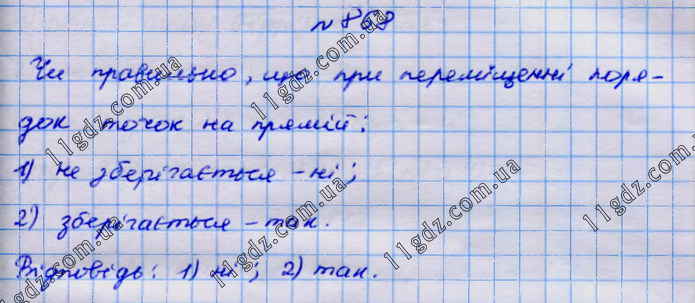 № 869
Чи правильно, що при переміщенні поря-
док точок на прямій:
1) не зберігається - ні;
2) зберігається - так.
Відповідь: 1) ні; 2) так.
11gdz.com.ua
11gdz.com.ua
11gdz.com.ua
11gdz.com.ua
11gdz.com.ua
11gdz.com.ua